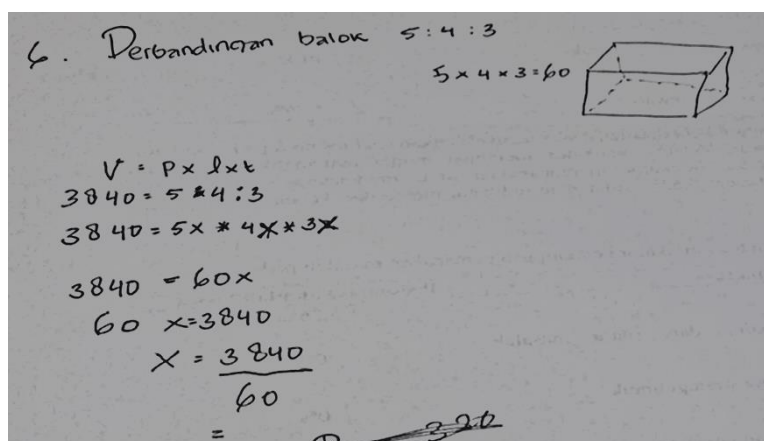 6. Perbandingan balok 5 : 4 : 3
5 x 4 x 3 = 60
V = P x l x t
3840 = 5 * 4 : 3
3840 = 5x * 4x * 3x
3840 = 60x
60 x = 3840
x = 3840
60
=
320